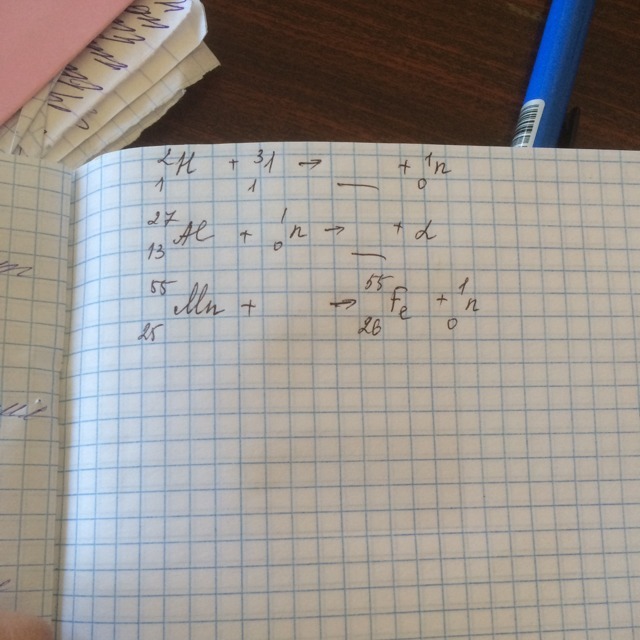 ²₁H + ³₁H → __ + ¹₀n
²⁷₁₃Al + ¹₀n → __ + α
⁵⁵₂₅Mn + → ⁵⁵₂₆Fe + ¹₀n